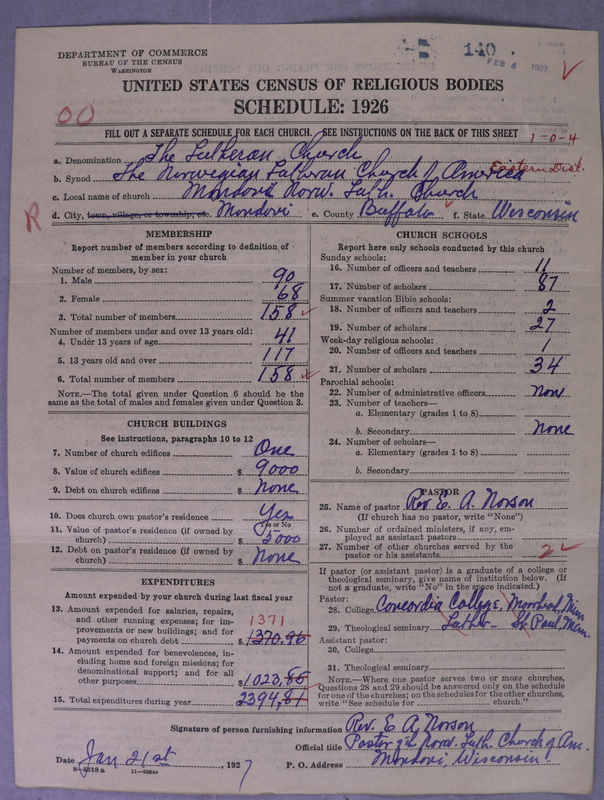 DEPARTMENT OF COMMERCE
BUREAU OF THE CENSUS
WASHINGTON
140
FEB 4 1927
UNITED STATES CENSUS OF RELIGIOUS BODIES
SCHEDULE: 1926
OO
FILL OUT A SEPARATE SCHEDULE FOR EACH CHURCH. SEE INSTRUCTIONS ON THE BACK OF THIS SHEET
1-0-4
a. Denomination The Lutheran Church
b. Synod The Norwegian Lutheran Church of America Eastern Dist.
c. Local name of church Mondovi Norw. Luth. Church
R
d. City, town, village, or township, etc. Mondovi e. County Buffalo f. State Wisconsin
MEMBERSHIP
Report number of members according to definition of
member in your church
Number of members, by sex:
1. Male 90
2. Female 68
3. Total number of members 158
Number of members under and over 13 years old:
4. Under 13 years of age 41
5. 13 years old and over 117
6. Total number of members 158
NOTE.—The total given under Question 6 should be
same as the total of males and females given under Question 3.
CHURCH BUILDINGS
See instructions, paragraphs 10 to 12
7. Number of church edifices One
8. Value of church edifices $ 9000
9. Debt on church edifices $ None
10. Does church own pastor's residence Yes
Yes or No
11. Value of pastor's residence (if owned by
church) $ 5000
12. Debt on pastor's residence (if owned by
church) $ None
EXPENDITURES
Amount expended by your church during last fiscal year
13. Amount expended for salaries, repairs,
and other running expenses; for im-
provements or new buildings; and for
payments on church debt $ 1370.96
1371
14. Amount expended for benevolences, in-
cluding home and foreign missions; for
denominational support; and for all
other purposes $ 1023.85
15. Total expenditures during year 2394.81
CHURCH SCHOOLS
Report here only schools conducted by this church
Sunday schools:
16. Number of officers and teachers 11
17. Number of scholars 87
Summer vacation Bible schools:
18. Number of officers and teachers 2
19. Number of scholars 27
Week-day religious schools:
20. Number of officers and teachers 1
21. Number of scholars 34
Parochial schools:
22. Number of administrative officers None
23. Number of teachers—
a. Elementary (grades 1 to 8)
b. Secondary None
24. Number of scholars—
a. Elementary (grades 1 to 8)
b. Secondary
PASTOR
25. Name of pastor Rev E. A. Norson
(If church has no pastor, write "None")
26. Number of ordained ministers, if any, em-
ployed as assistant pastors
27. Number of other churches served by the
pastor or his assistants 2
If pastor (or assistant pastor) is a graduate of a college or
theological seminary, give name of institution below. (If
not a graduate, write "No" in the space indicated.)
Pastor:
28. College Concordia College, Moorhead, Min
29. Theological seminary Luther- St Paul Min.
Assistant pastor:
30. College
31. Theological seminary
NOTE.—Where one pastor serves two or more churches,
Questions 28 and 29 should be answered only on the schedule
for one of the churches; on the schedules for the other churches,
write "See schedule for church."
Signature of person furnishing information Rev. E A Norson
Official title Pastor of the Norw. Luth. Church of Am.
Date Jan 21st, 1927
P. O. Address Mondovi, Wisconsin
8-5518a 11-9054